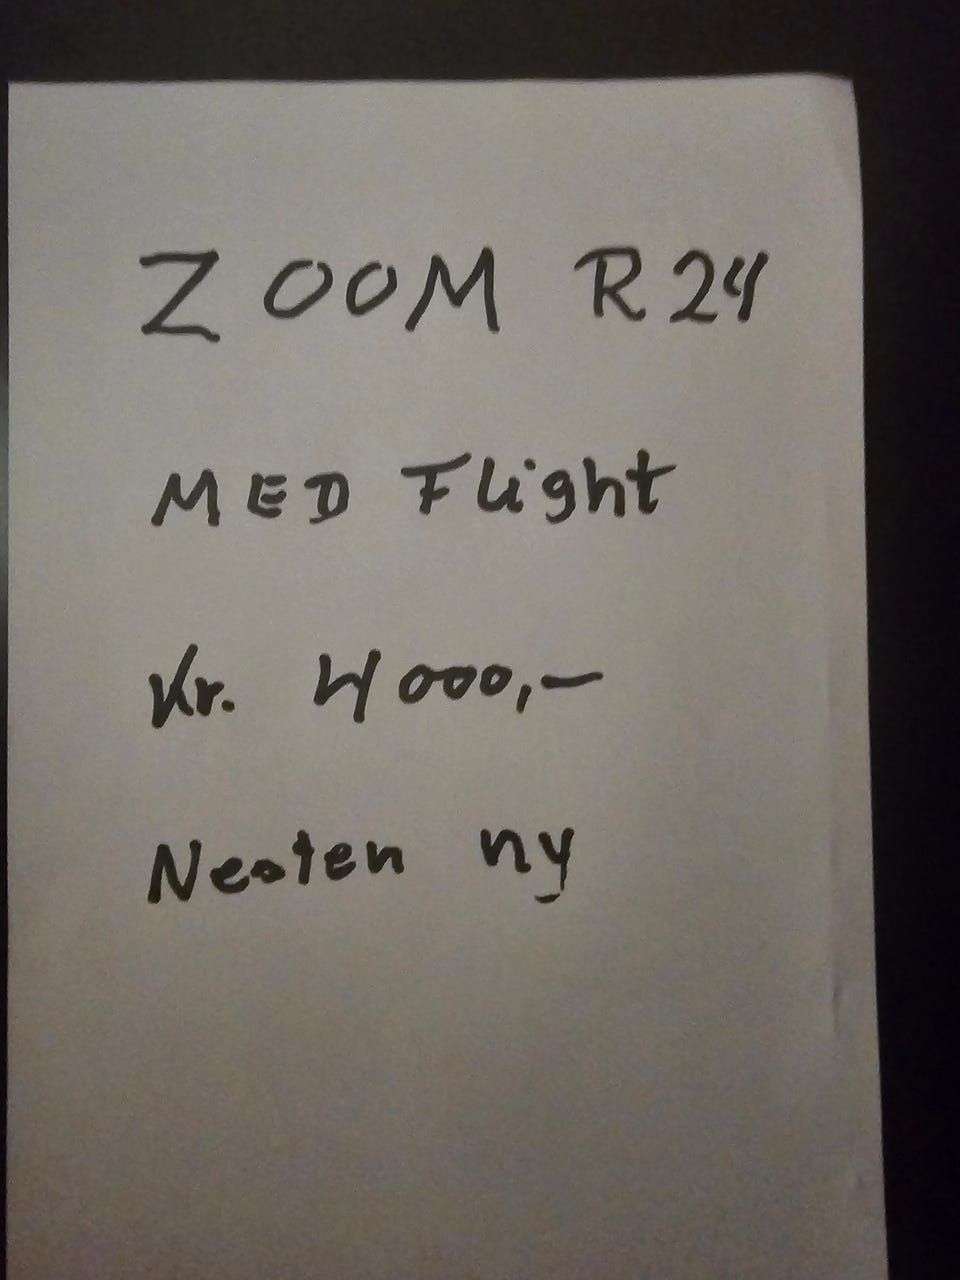 ZOOM R24
MED Flight
Kr. 4000,-
Nesten ny